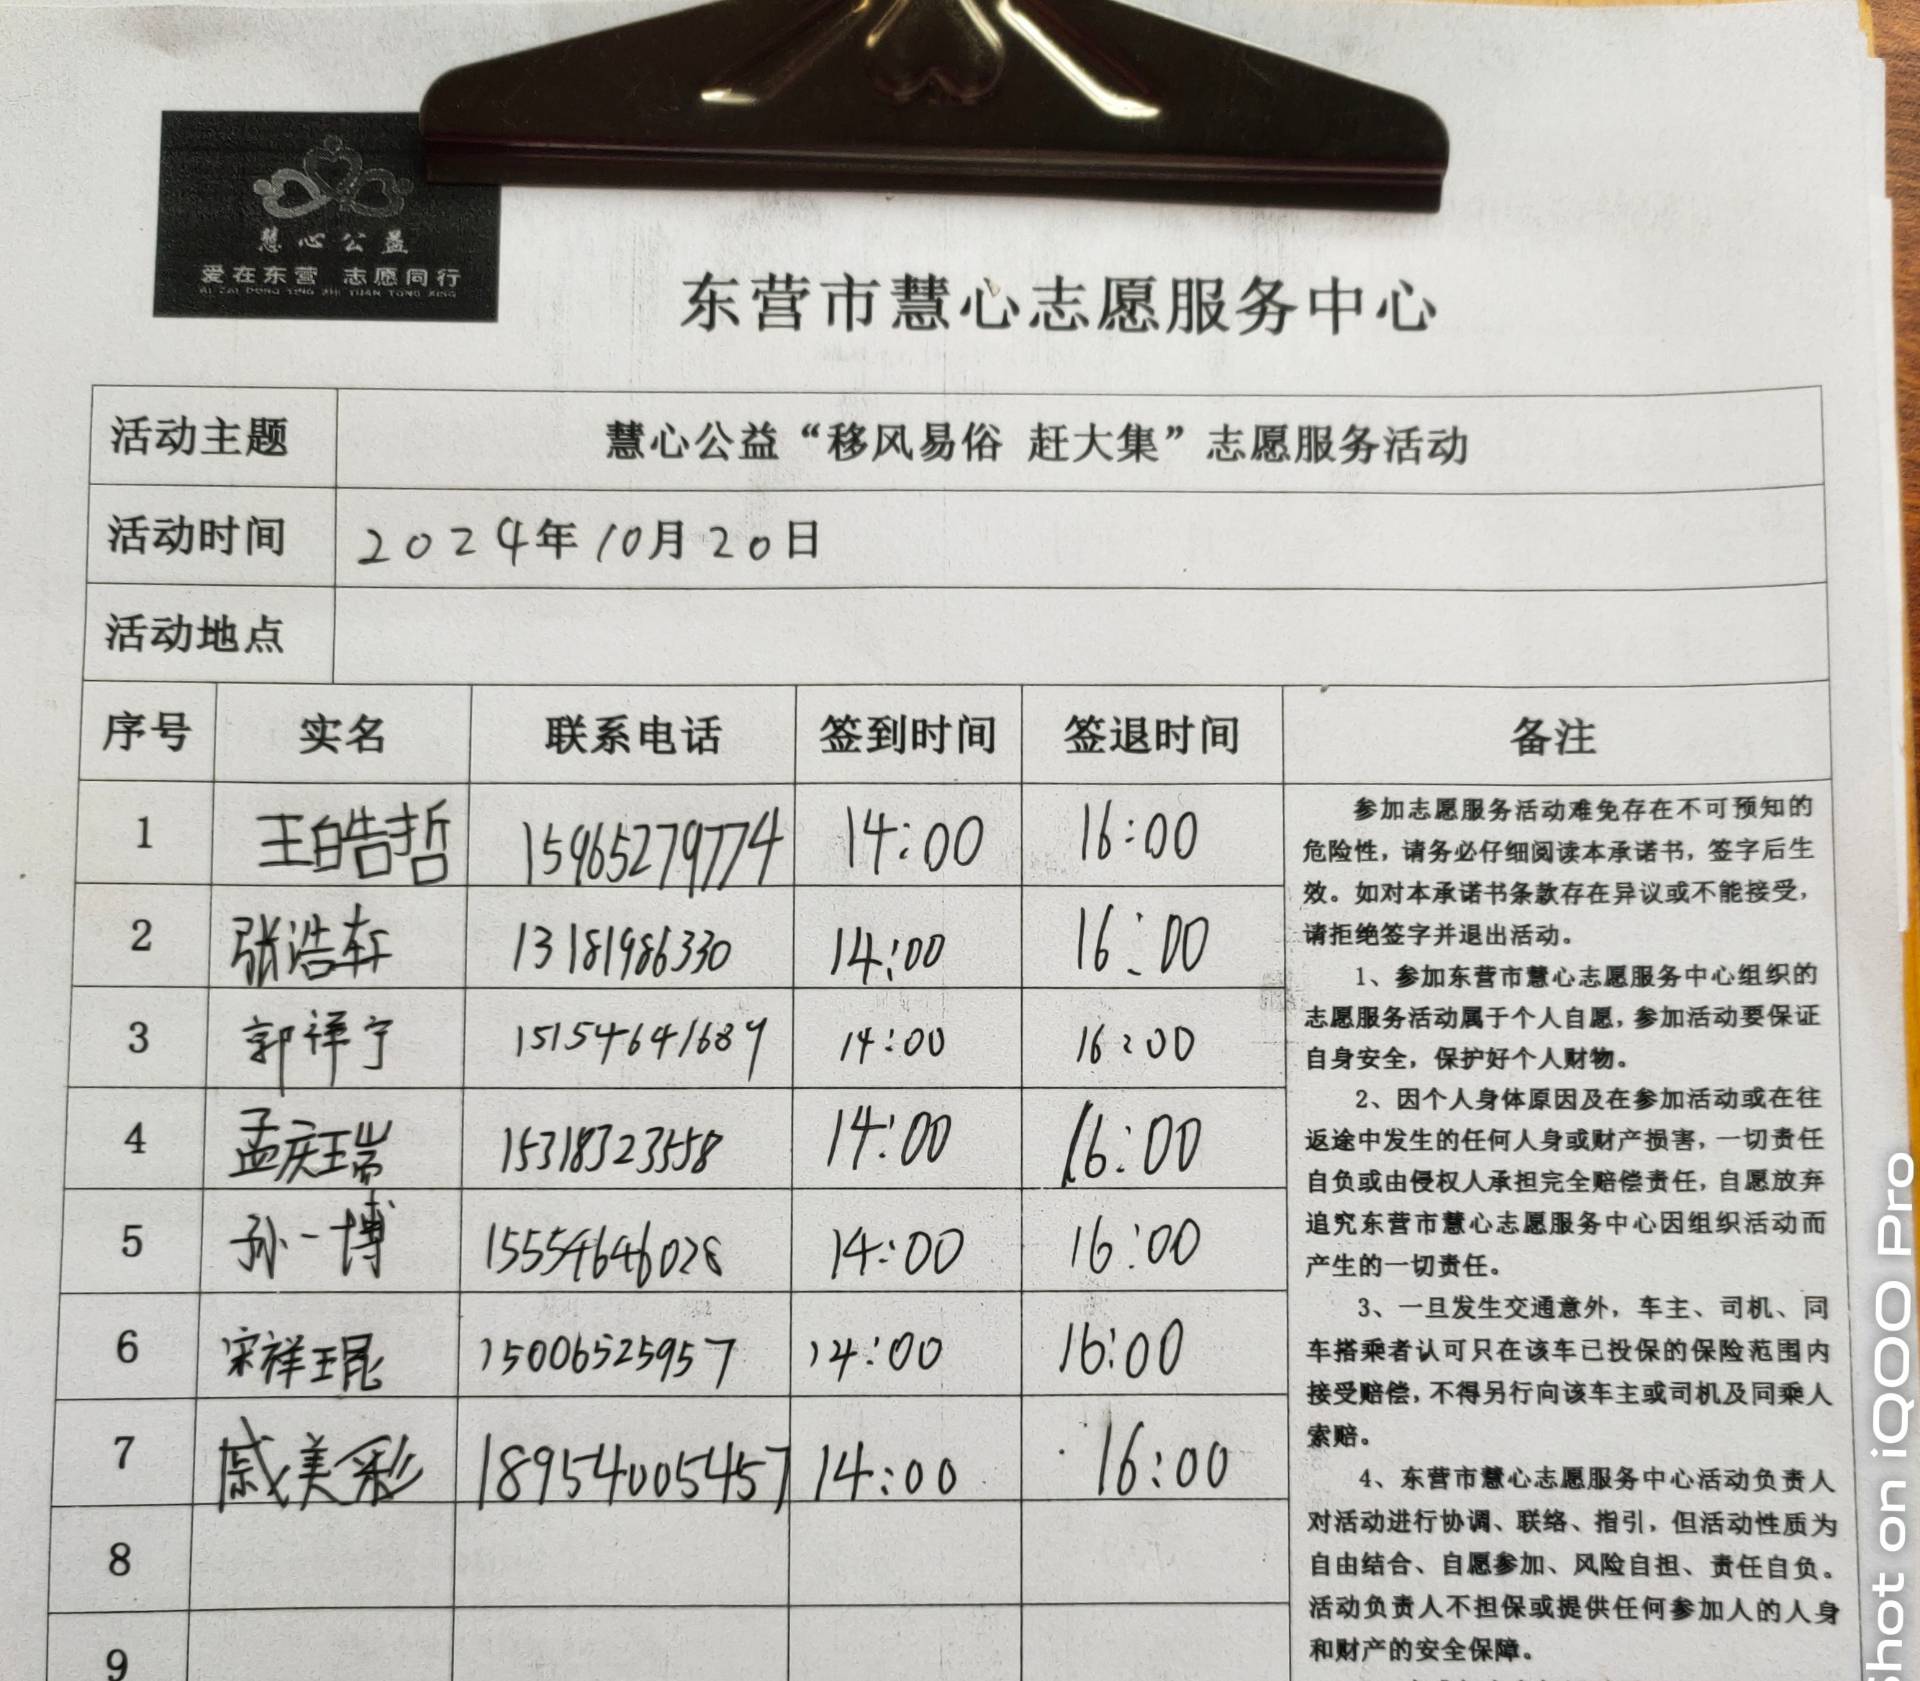 慧心公益
爱在东营 志愿同行
AI ZAI DONG YING ZHI YUAN TONG XING
东营市慧心志愿服务中心
活动主题 慧心公益“移风易俗 赶大集”志愿服务活动
活动时间 2024年10月20日
活动地点
序号 实名 联系电话 签到时间 签退时间 备注
1 王皓哲 15965279774 14:00 16:00
2 张浩轩 13181986330 14:00 16:00
3 郭祥宁 15154641689 14:00 16:00
4 孟庆瑞 15318323558 14:00 16:00
5 孙一博 15554646028 14:00 16:00
6 宋祥琨 15006525957 14:00 16:00
7 戚美彩 18954005457 14:00 16:00
8
9
参加志愿服务活动难免存在不可预知的
危险性，请务必仔细阅读本承诺书，签字后生
效。如对本承诺书条款存在异议或不能接受，
请拒绝签字并退出活动。
1、参加东营市慧心志愿服务中心组织的
志愿服务活动属于个人自愿，参加活动要保证
自身安全，保护好个人财物。
2、因个人身体原因及在参加活动或在往
返途中发生的任何人身或财产损害，一切责任
自负或由侵权人承担完全赔偿责任，自愿放弃
追究东营市慧心志愿服务中心因组织活动而
产生的一切责任。
3、一旦发生交通意外，车主、司机、同
车搭乘者认可只在该车已投保的保险范围内
接受赔偿，不得另行向该车主或司机及同乘人
索赔。
4、东营市慧心志愿服务中心活动负责人
对活动进行协调、联络、指引，但活动性质为
自由结合、自愿参加、风险自担、责任自负。
活动负责人不担保或提供任何参加人的人身
和财产的安全保障。
Shot on iQOO Pro